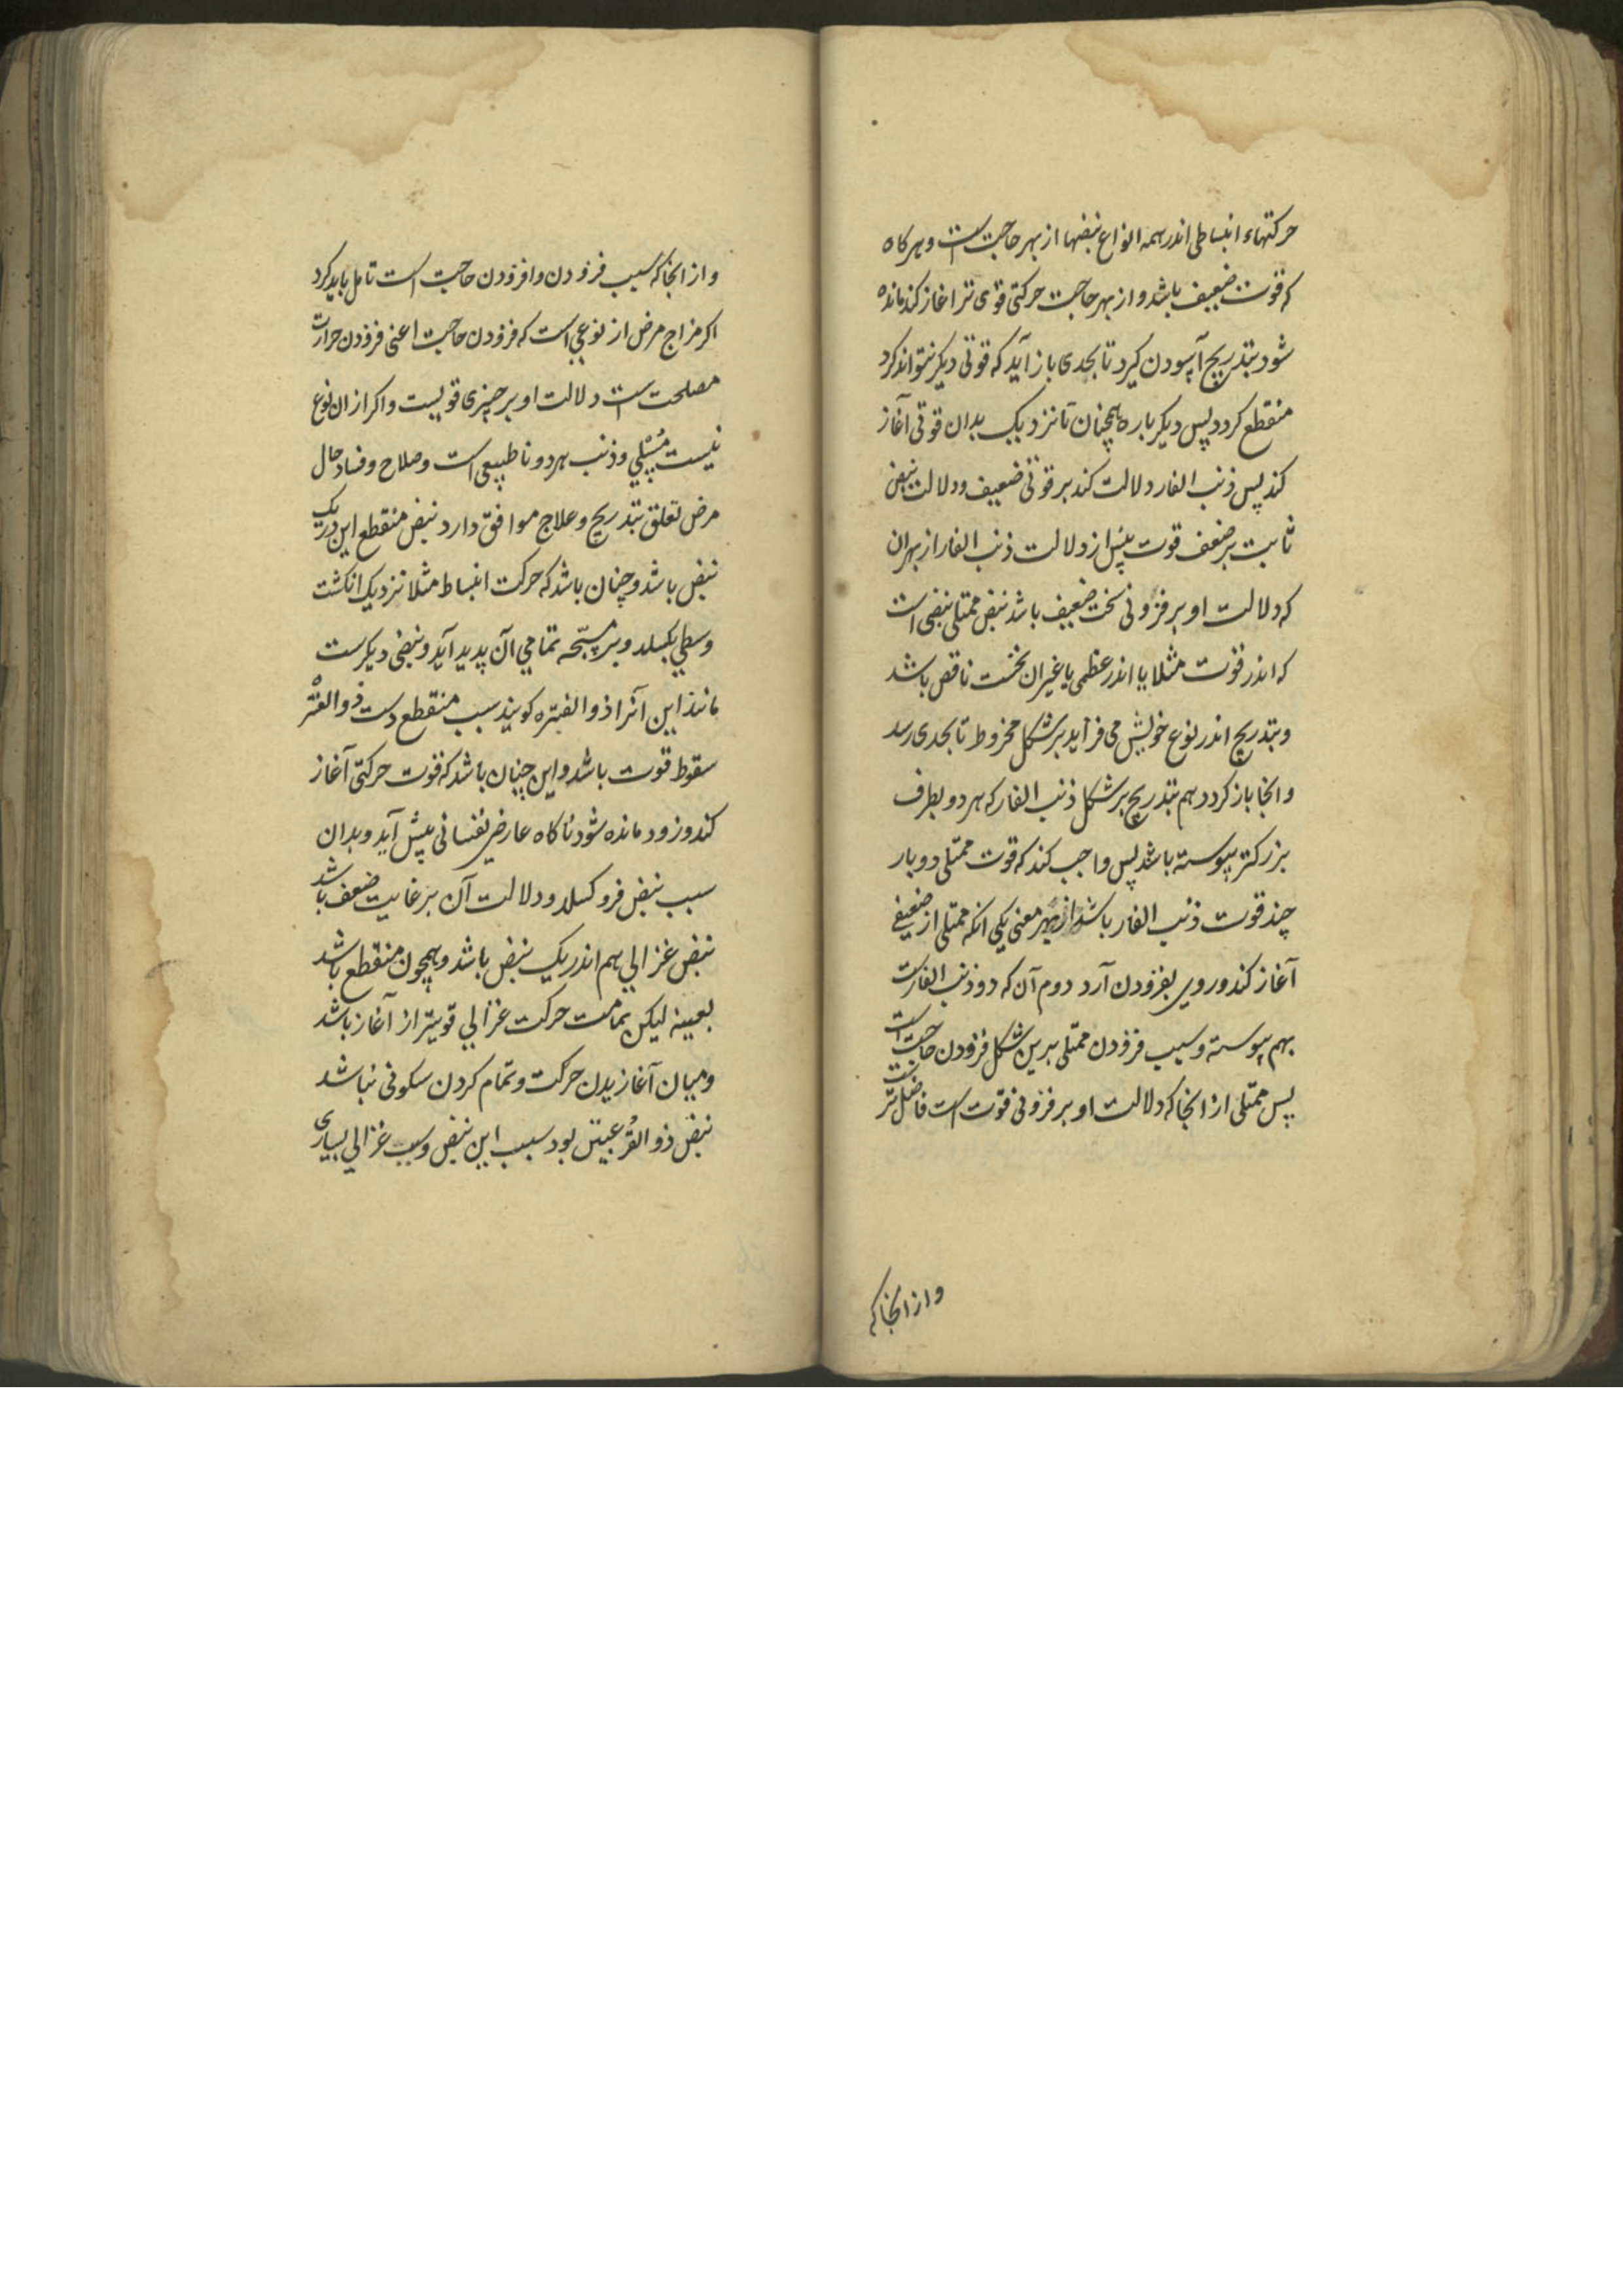 حرکتهاء انبساطی اندر همه انواع نبضها از بهر حاجت است و هرکاه
که قوت ضعیف باشد و از بهر حاجت حرکتی قوی تر اغاز کند مانده
شود بتدریج آسودن کیرد تا بحدی باز آید که قوتی دیکر نتواند کرد
منقطع کردد پس دیکر باره همچنان تا نزدیک بدان قوتی آغاز
کند پس ذنب الفار دلالت کند بر قوتی ضعیف و دلالت نبض
ثابت بر ضعف قوت بیش از دلالت ذنب الفار از بهر ان
که دلالت او بر فزونی سخت ضعیف باشد نبض ممتلی نبضی است
که اندر قوت مثلا یا اندر عظمی یا غیر ان نخست ناقص باشد
و بتدریج اندر نوع خویش می فزاید بر شکل مخروط تا بحدی رسد
و انجا باز کردد هم بتدریج بر شکل ذنب الفار که هر دو بطرف
بزرکتر پیوسته باشد پس واجب کند که قوت ممتلی دو بار
چند قوت ذنب الفار باشد از بهر معنی یکی انکه ممتلی از ضعیفی
آغاز کند و روی بفزودن آرد دوم آن که دو ذنب الفارست
بهم پیوسته و سبب فزودن ممتلی برین شکل فزودن حاجت است
پس ممتلی از انجا که دلالت او بر فزونی قوت است فاضل ترست
و از انجا که
و از انجا که سبب فزودن و افزودن حاجت است تامل باید کرد
اکر مزاج مرض از نوعی است که فزودن حاجت اعنی فزودن حرارت
مصلحت است دلالت او بر چیزی قویست و اکر از ان نوع
نیست مسلی و ذنب هر دو نا طبیعی است و صلاح و فساد حال
مرض تعلق بتدریج و علاج موافق دارد نبض منقطع این در یک
نبض باشد و چنان باشد که حرکت انبساط مثلا نزدیک انکشت
وسطی بکسلد و بر مسبحه تمامی آن پدید آید و نبضی دیکرست
مانند این آنرا ذو الفتره کویند سبب منقطع دست ذو الفتره
سقوط قوت باشد و این چنان باشد که قوت حرکتی آغاز
کند و زود مانده شود ناکاه عارضی نفسانی پیش آید و بدان
سبب نبض فرو کسلد و دلالت آن بر غایت ضعف باشد
نبض غزالی هم اندر یک نبض باشد و همچون منقطع باشد
بعینه لیکن تمامت حرکت غزالی قویتر از آغاز باشد
و میان آغازیدن حرکت و تمام کردن سکونی نباشد
نبض ذو القرعتین بود سبب این نبض و سبب غزالی بسیاری